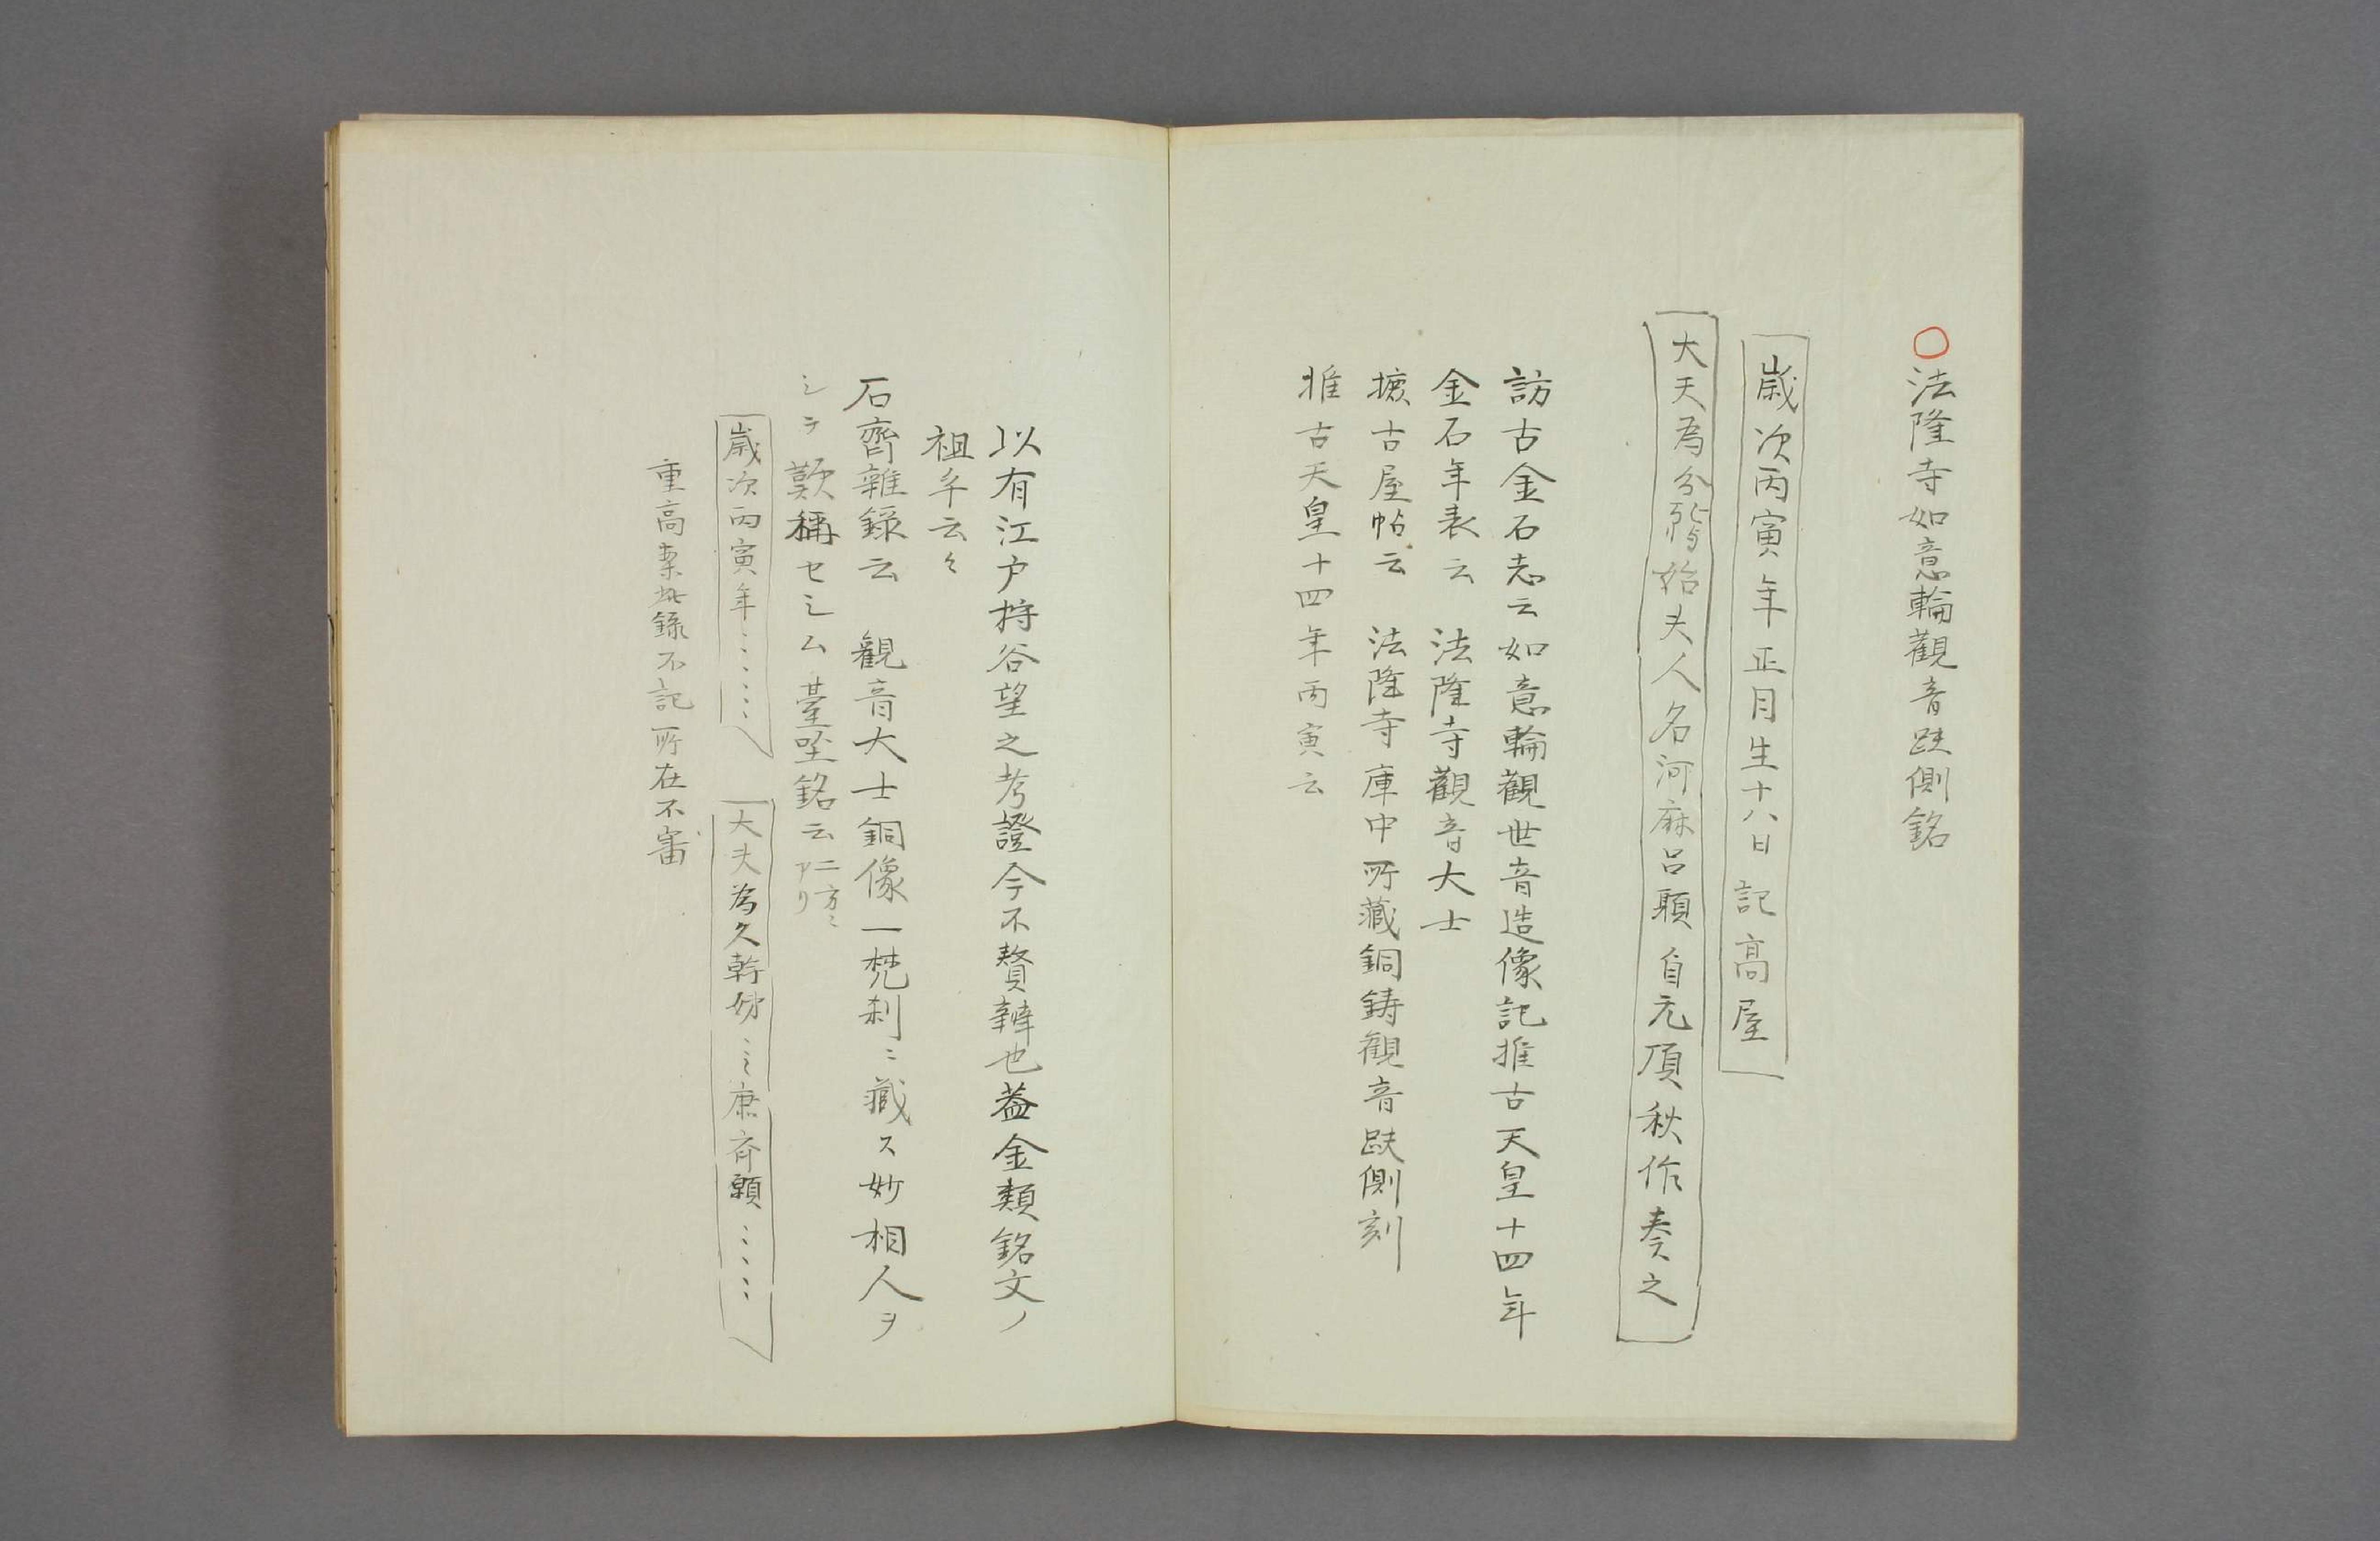 〇法隆寺如意輪觀音趺側銘
歳次丙寅年正月生十八日記高屋
大夫為分韓始夫人名阿麻呂願自元頂秋作奏之
訪古金石志云如意輪觀世音造像記推古天皇十四年
金石年表云 法隆寺觀音大士
攗古屋帖云 法隆寺庫中所藏銅鋳観音趺側刻
推古天皇十四年丙寅云
以有江戸狩谷望之考證今不贅辯也盖金類銘文ノ
祖乎云々
石齊雜録云 観音大士銅像一梵刹ニ藏ス妙相人ヲ
シテ歎稱セシム䑓坐銘云二方ニアリ
歳次丙寅年……
大夫為久幹妨……康斉願……
重高案此録不記所在不審